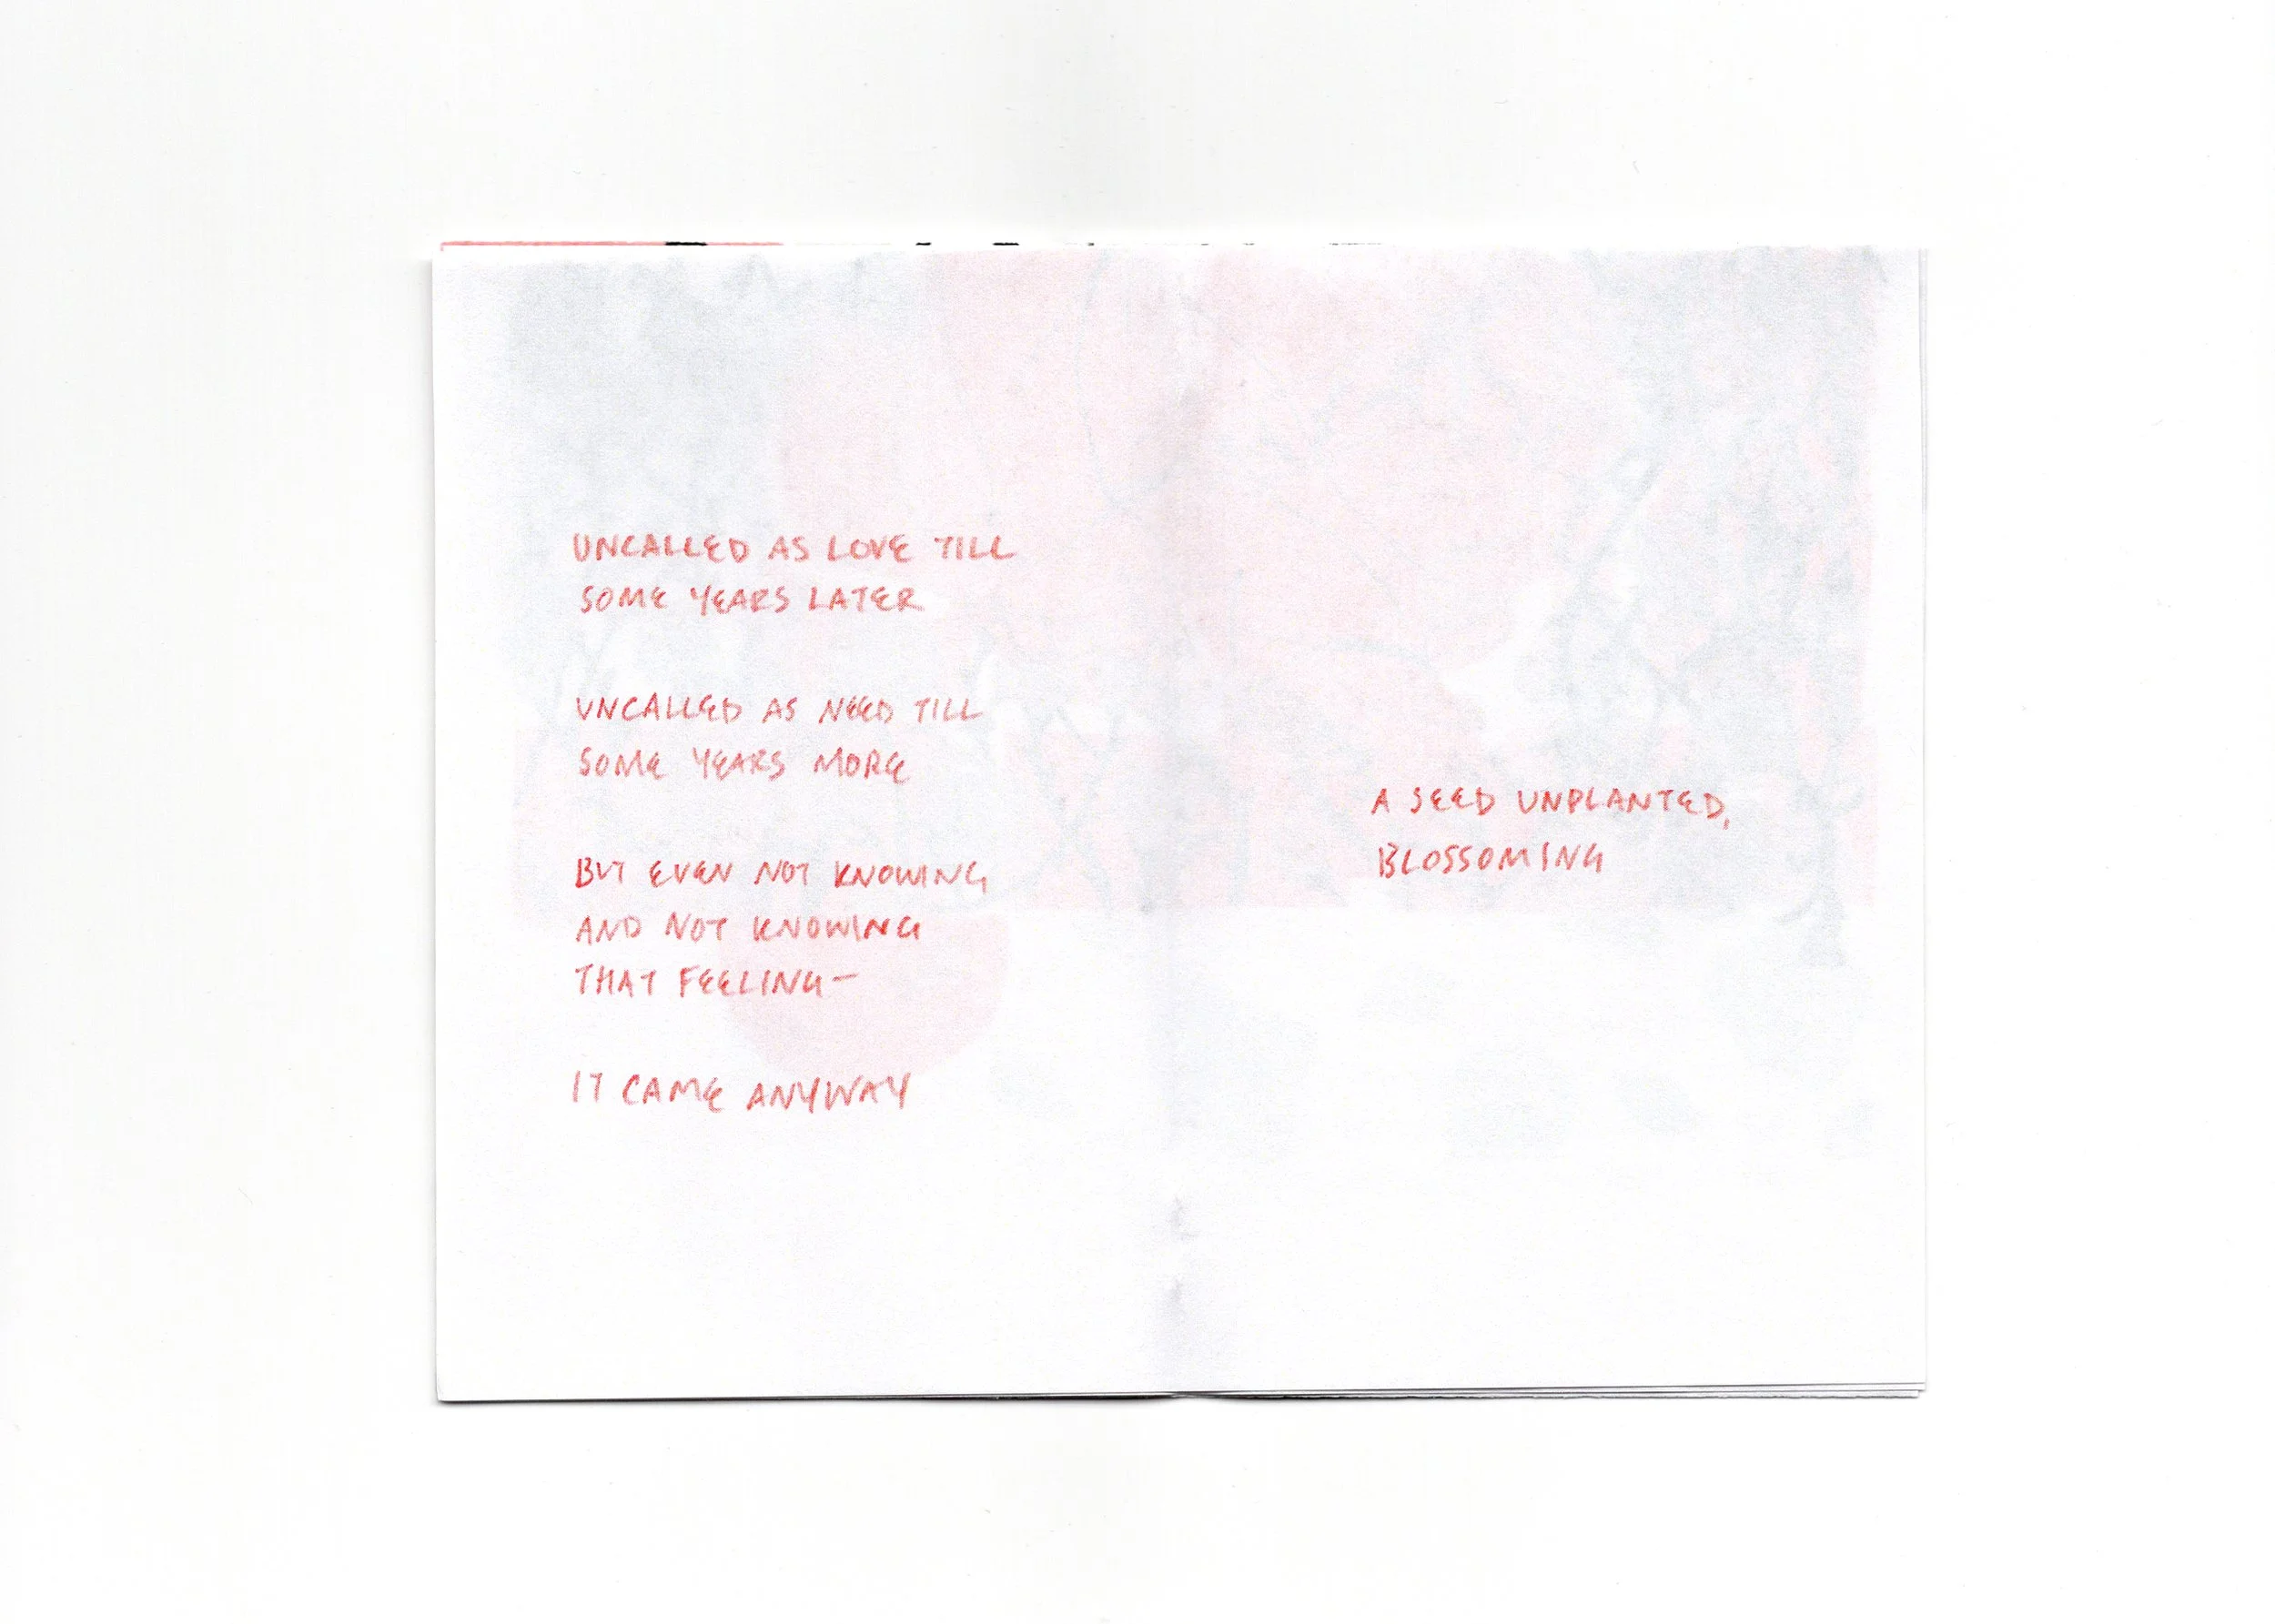 UNCALLED AS LOVE TILL
SOME YEARS LATER
UNCALLED AS NEED TILL
SOME YEARS MORE
BUT EVEN NOT KNOWING
AND NOT KNOWING
THAT FEELING—
IT CAME ANYWAY
A SEED UNPLANTED,
BLOSSOMING